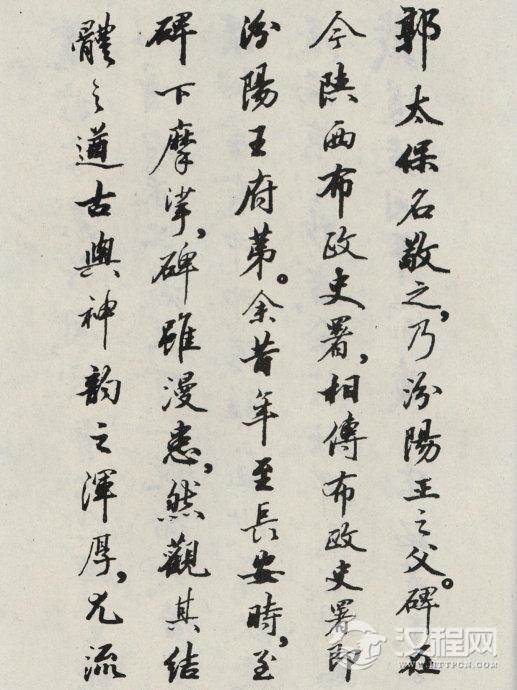 郭太保名敬之,乃汾陽王之父。碑在
今陝西布政史署,相傳布政史署即
汾陽王府第。余昔年至長安時,至
碑下摩挲,碑雖漫患,然觀其结
體之遒古與神韵之渾厚,尤流
汉程网
HTTPCN.COM